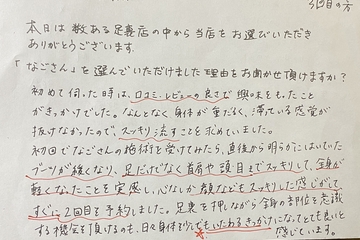 3回目の方
本日は数ある足裏店の中から当店をお選びいただき
ありがとうございます.
「なごさん」を選んでいただけました理由をお聞かせ頂けますか?
初めて伺った時は、口コミ・レビューの良さで興味をもったこと
がきっかけでした。なんとなく身体が重だるく、滞っている感覚が
抜けなかったので、スッキリ流すことを求めていました。
初回でなごさんの施術を受けてみたら、直後から明らかにはいていた
ブーツが緩くなり、足だけでなく首肩や頭目までスッキリして、全身が
軽くなったことを実感し、心なしか顔などもスッキリした感じがして、
すぐに2回目を予約しました。足裏を押しながら全身の部位を意識
する機会を頂けるのも、日々身体を
いたわるきっかけになってとても良いと
感じています。